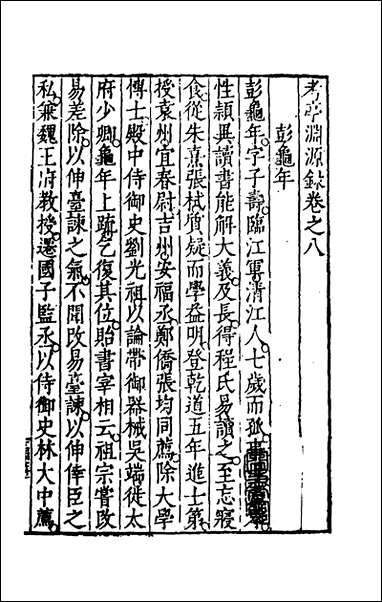 考亭淵源錄卷之八
彭龜年
彭龜年字子壽臨江軍清江人七歲而孤事
性穎異讀書能解大義及長得程氏易讀之至忘寢
食從朱熹張栻質疑而學益明登乾道五年進士第
授袁州宜春尉吉州安福丞鄭僑張均同薦除大學
博士殿中侍御史劉光祖以論帶御器械吳端徙太
府少卿龜年上疏乞復其位貽書宰相云祖宗嘗改
易差除以伸臺諫之氣不聞改易臺諫以伸倖臣之
私兼魏王府教授遷國子監丞以侍御史林大中薦